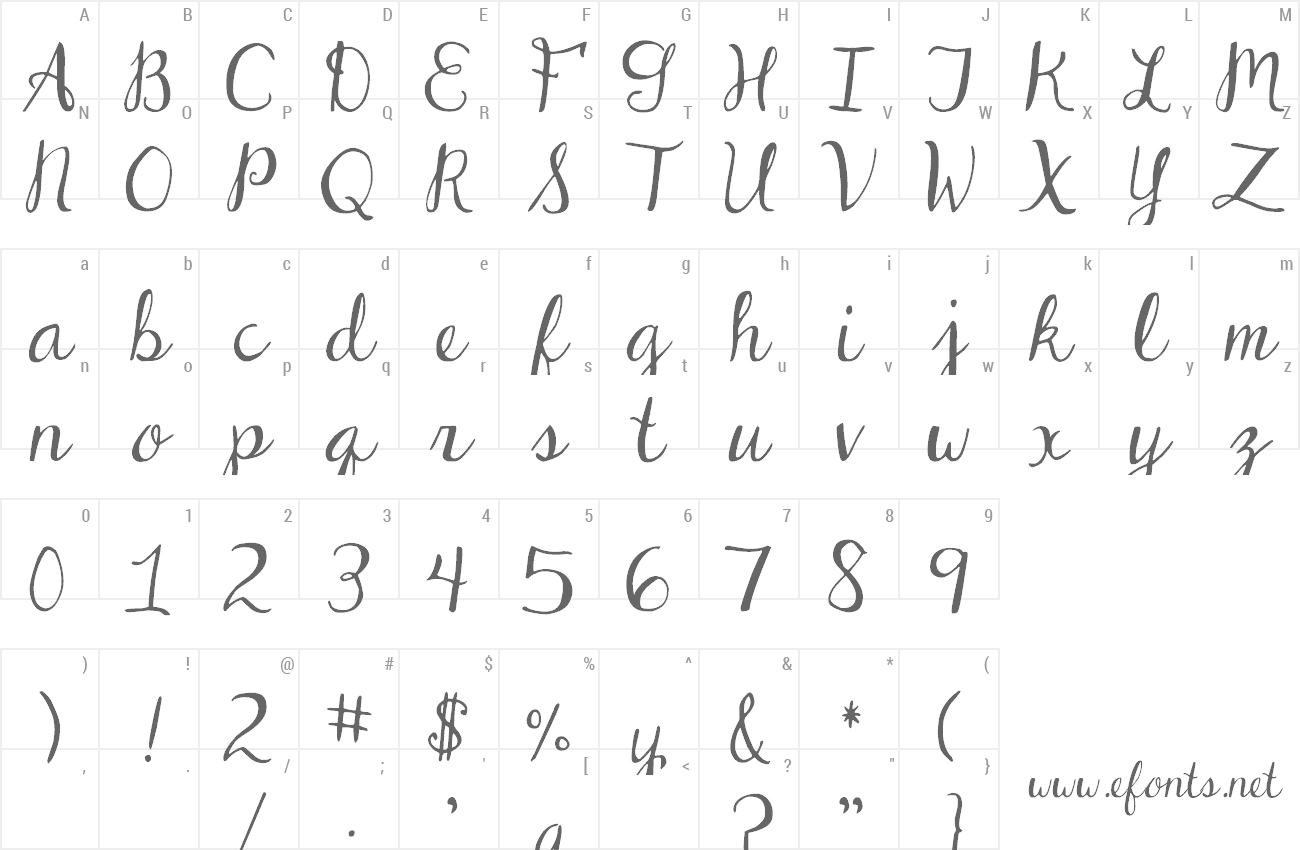 A B C D E F G H I J K L M
A B C D E F G H I J K L M
N O P Q R S T U V W X Y Z
N O P Q R S T U V W X Y Z
a b c d e f g h i j k l m
a b c d e f g h i j k l m
n o p q r s t u v w x y z
n o p q r s t u v w x y z
0 1 2 3 4 5 6 7 8 9
0 1 2 3 4 5 6 7 8 9
) ! @ # $ % ^ & * (
) ! 2 # $ % y & * (
, . / ; ' [ < ? " }
/ . ' ? " }
www.efonts.net